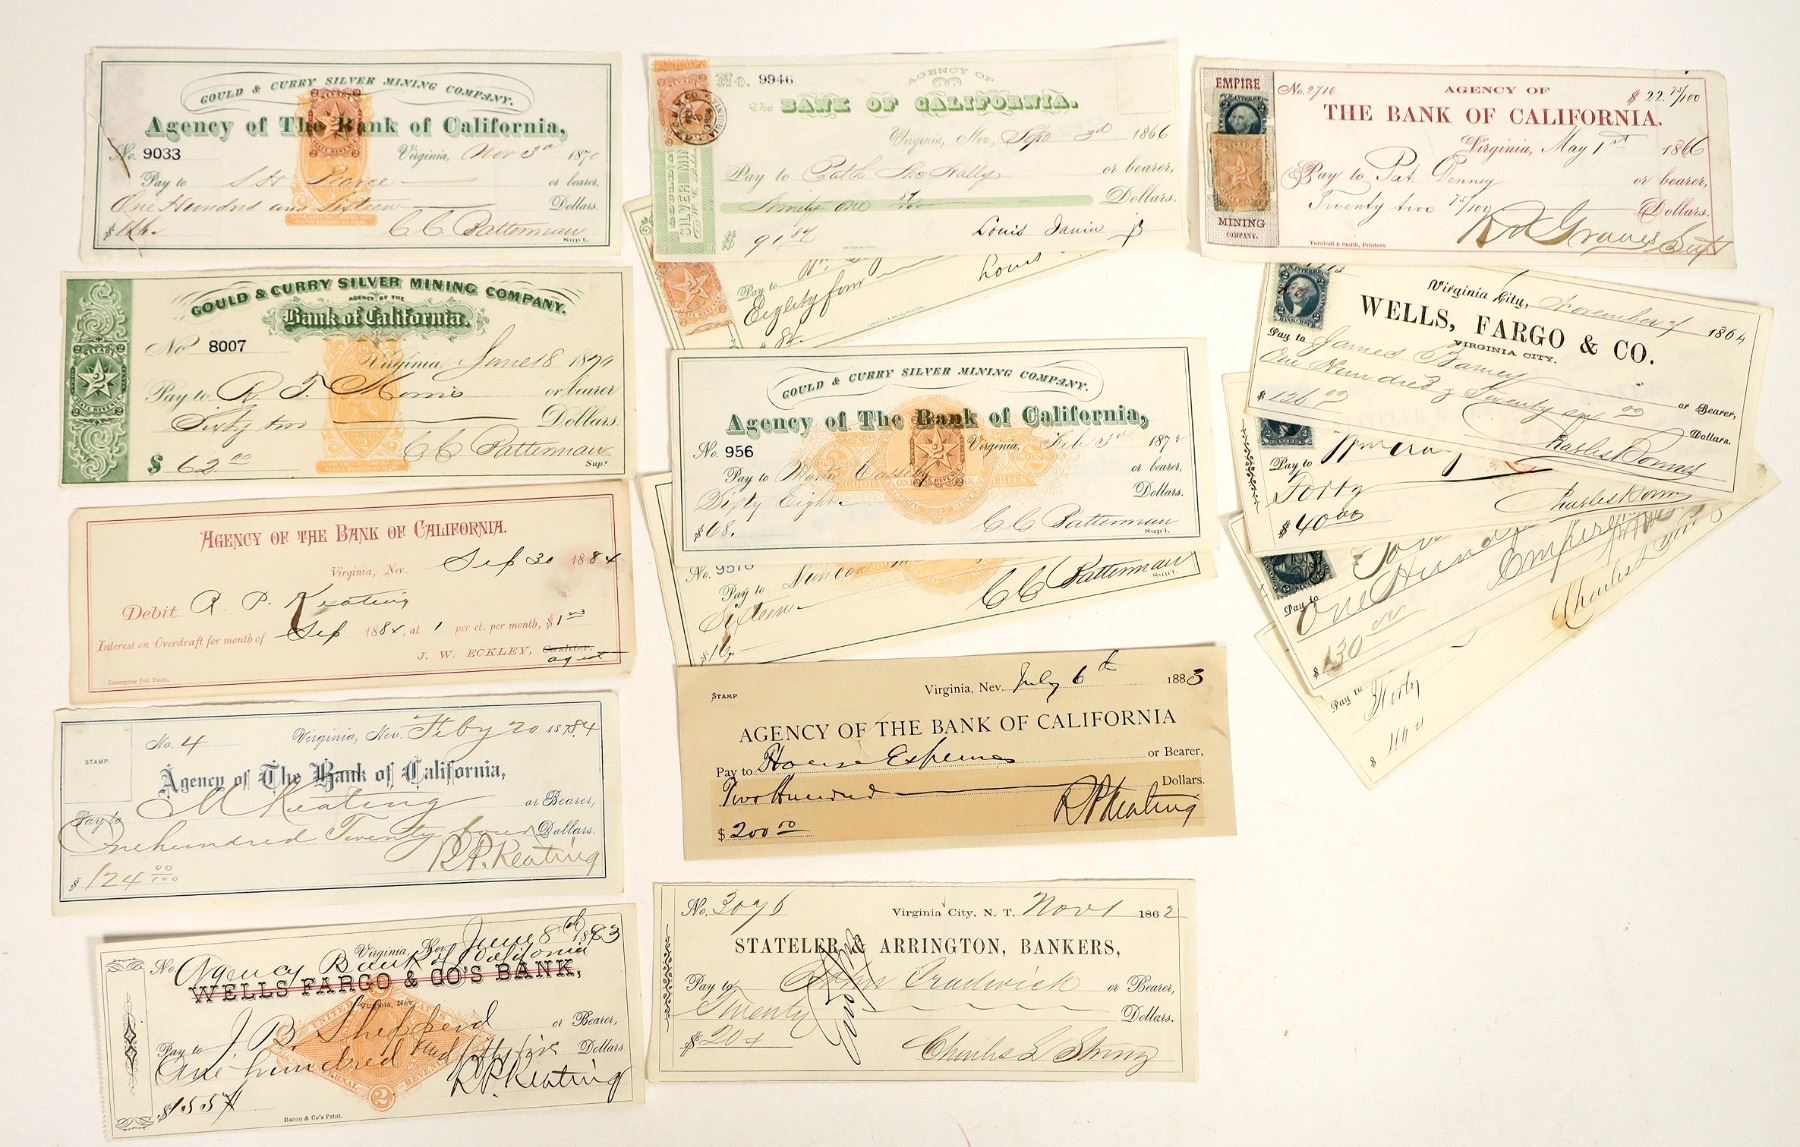 GOULD & CURRY SILVER MINING COMPANY.
Agency of The Bank of California,
No. 9033 Virginia, Nov 3d 1870
Pay to S H Pearce or bearer,
One Hundred and Sixteen Dollars.
$116. C C Batterman
Sup't.
GOULD & CURRY SILVER MINING COMPANY.
AGENCY OF THE
Bank of California.
NEVADA
2
STATE REVENUE
No 8007 Virginia, June 18 1870
Pay to R. T. Morris or bearer
Sixty two Dollars.
$ 62 00 C C Batterman
Supt
AGENCY OF THE BANK OF CALIFORNIA.
Virginia, Nev. Sep 30 1884
Debit R. P. Keating
Interest on Overdraft for month of Sep 1884, at 1 per ct. per month, $1
J. W. ECKLEY, Cashier.
agent
Enterprise Job Print.
STAMP.
No. 4 Virginia, Nev. Feby 20 1884
Agency of The Bank of California,
Pay to M Keating or Bearer,
One hundred Twenty four Dollars.
$124 00/100 R.P. Keating
No Virginia, Nev. June 8th 1883
Agency Bank of California
WELLS FARGO & CO'S BANK,
Virginia, Nev.
Pay to J. B. Shepperd or Bearer,
One hundred and fifty five Dollars
$155 R.P. Keating
2
Bacon & Co's Print.
No. 9946 AGENCY OF
The BANK OF CALIFORNIA.
Virginia, Nev, Sep 3d 1866
Pay to or bearer
Ninety one Dollars.
$ 91 Louis Janin Jr
SILVER MIN
Pay to
Eighty four Louis
$ 84.
GOULD & CURRY SILVER MINING COMPANY.
Agency of The Bank of California,
No. 956 Virginia, Feb 3rd 187
Pay to or bearer,
Sixty Eight Dollars.
$68. C C Batterman
Supt.
No. 9578
Pay to
Sixteen C C Batterman
$16 Supt.
STAMP
Virginia, Nev. July 6th 1883
AGENCY OF THE BANK OF CALIFORNIA
Pay to House Expenses or Bearer,
Two Hundred Dollars.
$200 00 R P Keating
No. 3076 Virginia City, N. T. Nov 1 1862
STATELER & ARRINGTON, BANKERS,
Pay to John or Bearer,
Twenty Dollars.
$20 Charles L Strong
EMPIRE
MINING
COMPANY.
No. 2710 AGENCY OF $22 75/100
THE BANK OF CALIFORNIA,
Virginia, May 1st 1866
Pay to Pat Denney or bearer,
Twenty two 75/100 Dollars.
Turnbull & Smith, Printers.
Supt
Virginia City, November 1864
WELLS, FARGO & CO.
VIRGINIA CITY.
Pay to James Barney or Bearer,
One Hundred & Twenty six 00 Dollars.
$126 00 Charles Bonner
Pay to Wm
Forty
$40 00 Charles Bonner
Pay to
One Hund
$130 00
Charles L
Pay to
Forty
$